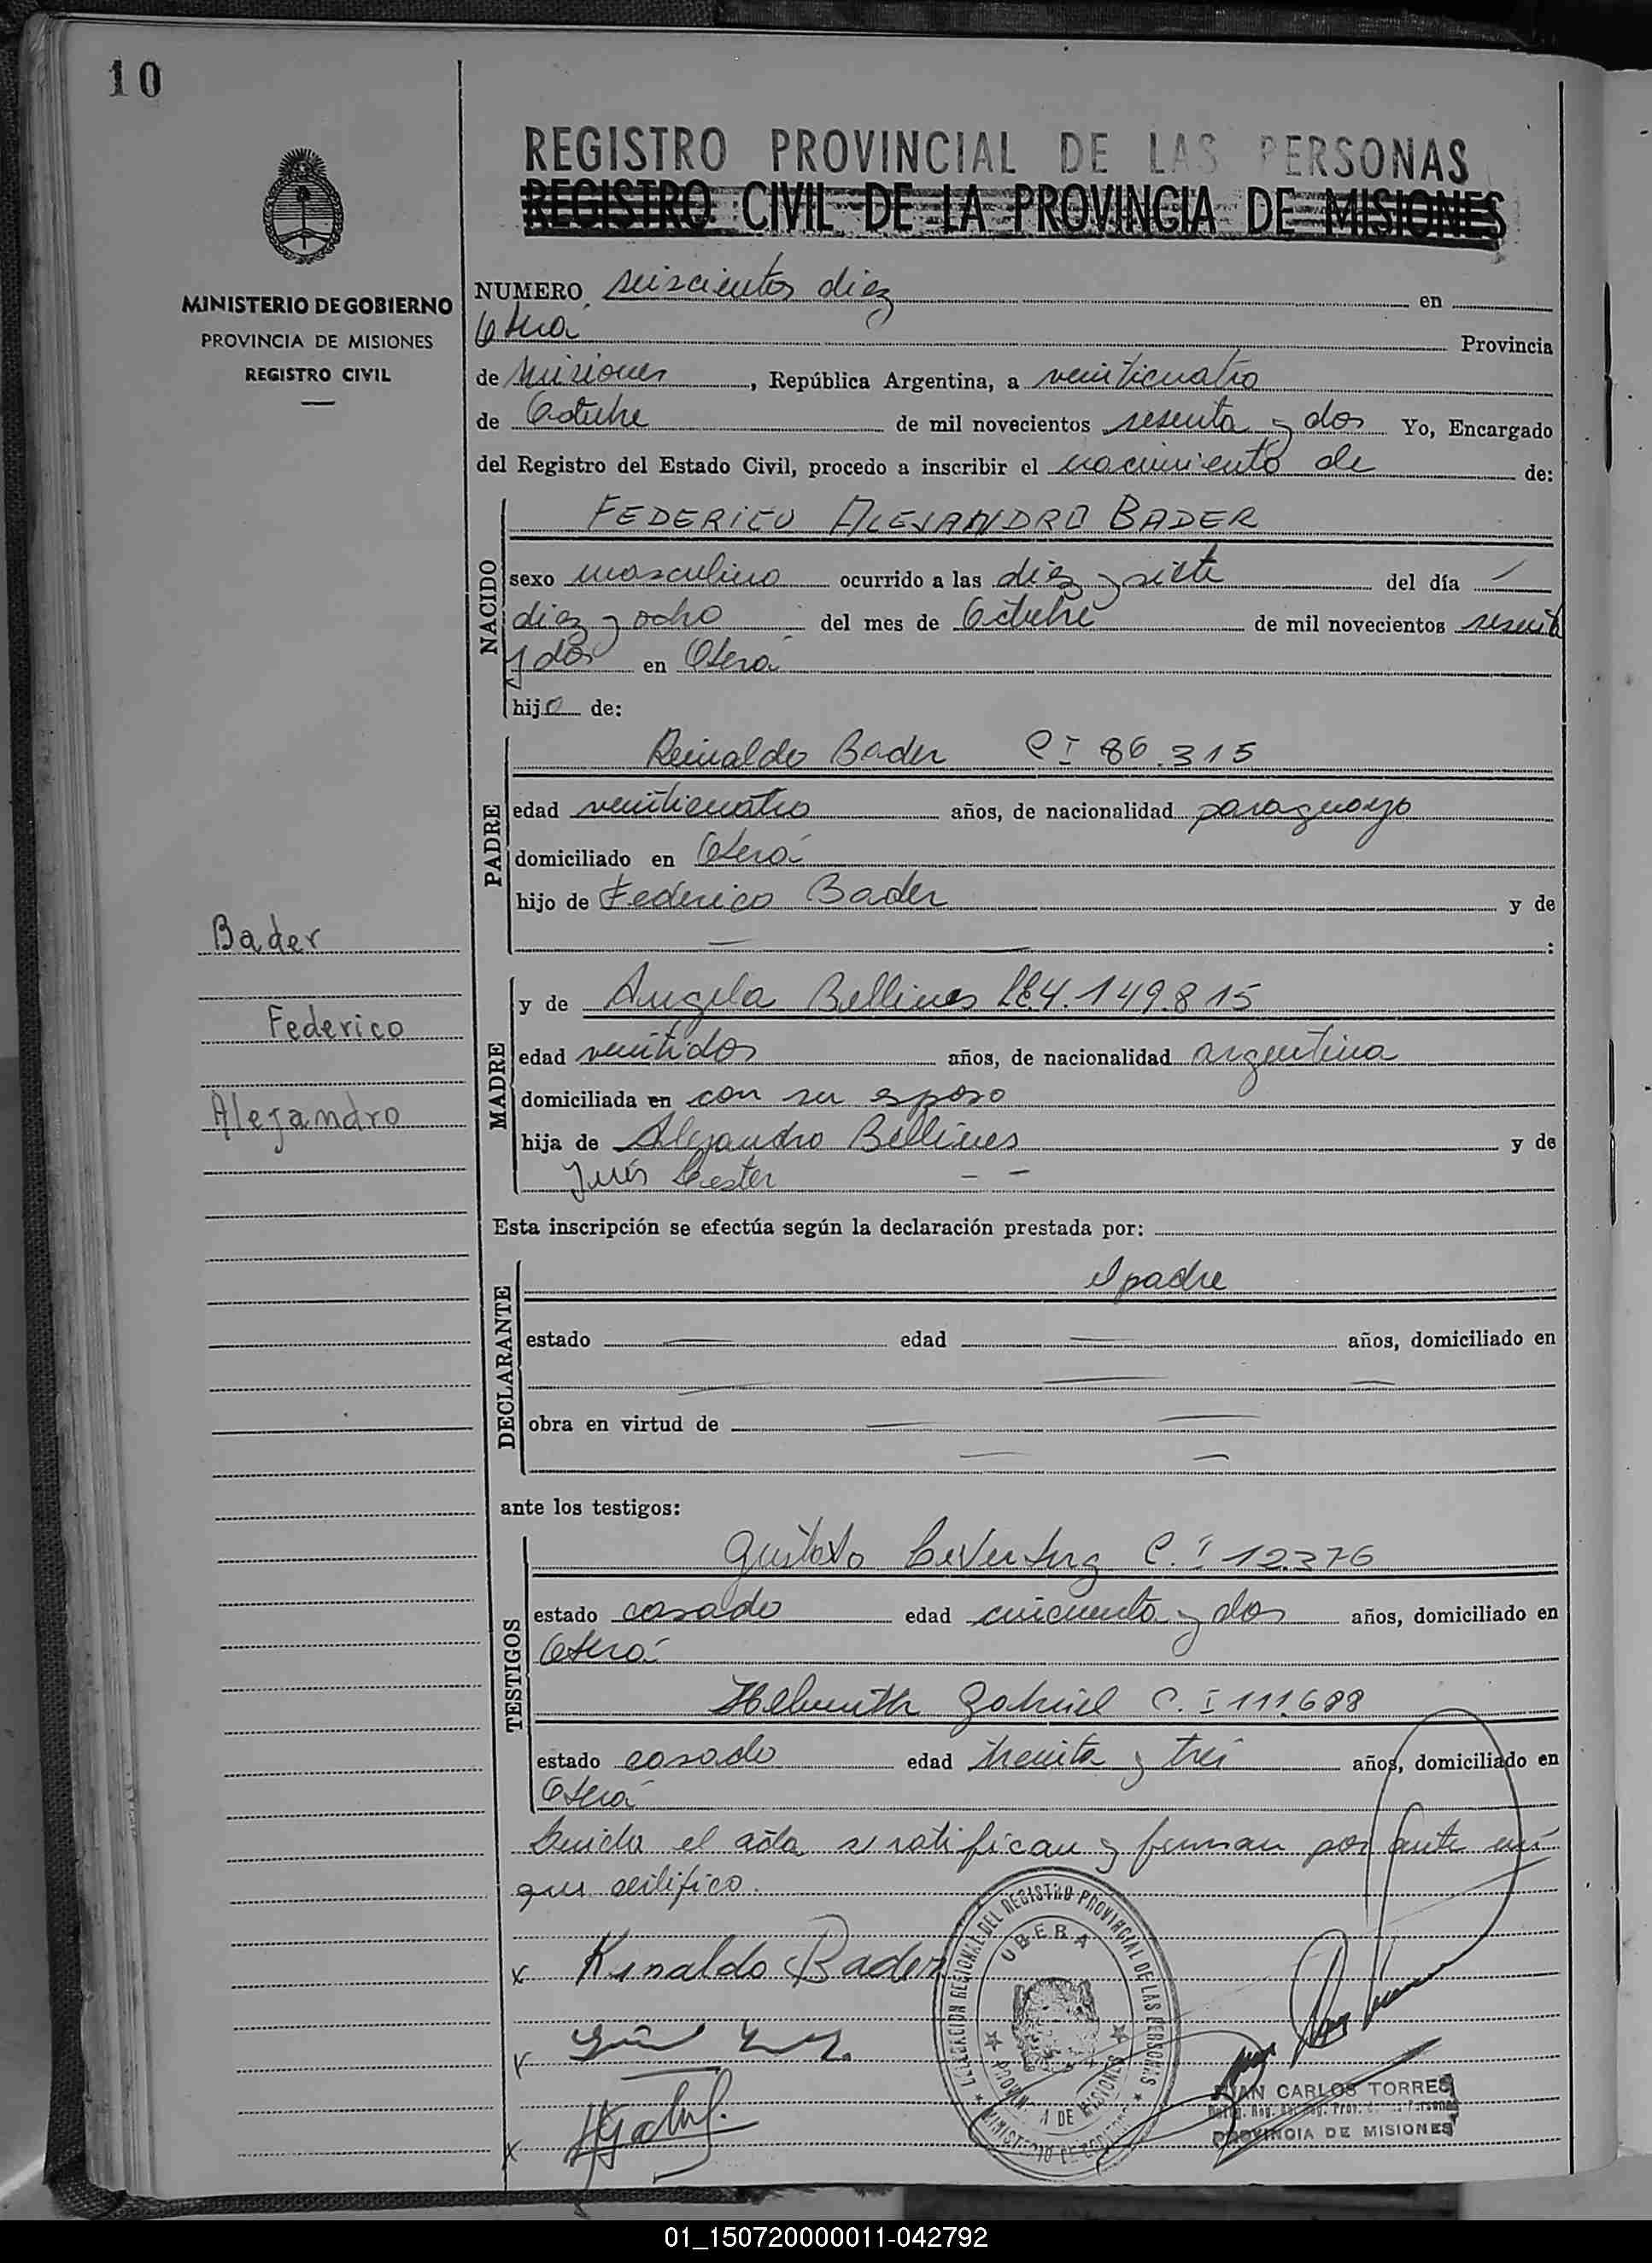 10
REGISTRO PROVINCIAL DE LAS PERSONAS
REGISTRO CIVIL DE LA PROVINCIA DE MISIONES
MINISTERIO DE GOBIERNO
PROVINCIA DE MISIONES
REGISTRO CIVIL
NUMERO seiscientos diez en
Oberá Provincia
de Misiones, República Argentina, a veinticuatro
de Octubre de mil novecientos sesenta y dos Yo, Encargado
del Registro del Estado Civil, procedo a inscribir el nacimiento de de:
NACIDO
FEDERICO ALEJANDRO BADER
sexo masculino ocurrido a las diez y siete del día
diez y ocho del mes de Octubre de mil novecientos sesenta
y dos en Oberá
hijo de:
PADRE
Reinaldo Bader CI 86.315
edad veinticuatro años, de nacionalidad paraguayo
domiciliado en Oberá
hijo de Federico Bader y de
:
Bader
Federico
Alejandro
MADRE
y de Angela Bellines LC 4.149.815
edad veintidos años, de nacionalidad argentina
domiciliada en con su esposo
hija de Alejandro Bellines y de
Inés
Esta inscripción se efectúa según la declaración prestada por:
DECLARANTE
el padre
estado edad años, domiciliado en
obra en virtud de
ante los testigos:
TESTIGOS
Gustavo C.I 12376
estado casado edad cincuenta y dos años, domiciliado en
Oberá
Helmuth Gabriel C.I 111.688
estado casado edad treinta y tres años, domiciliado en
Oberá
Leida el acta se ratifican y firman por ante mí
que certifico.
x Rinaldo Bader
x
x
DELEGACION REGIONAL DEL REGISTRO PROVINCIAL DE LAS PERSONAS
OBERA
PROVINCIA DE MISIONES
MINISTERIO DE GOBIERNO
JUAN CARLOS TORRES
PROVINCIA DE MISIONES
01_150720000011-042792